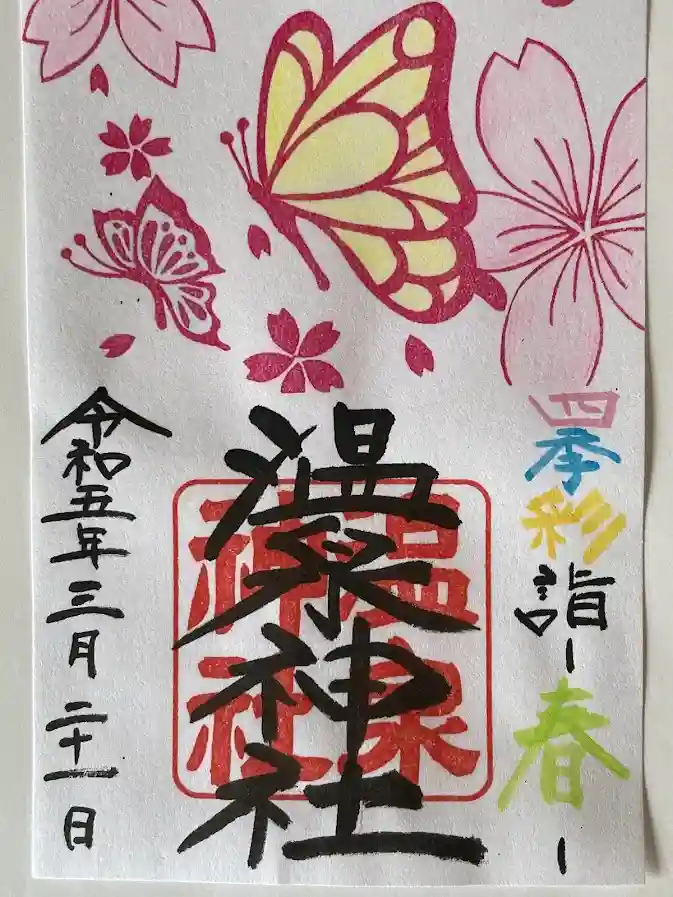 四季彩詣-春-
温泉神社
温泉神社
令和五年三月二十一日